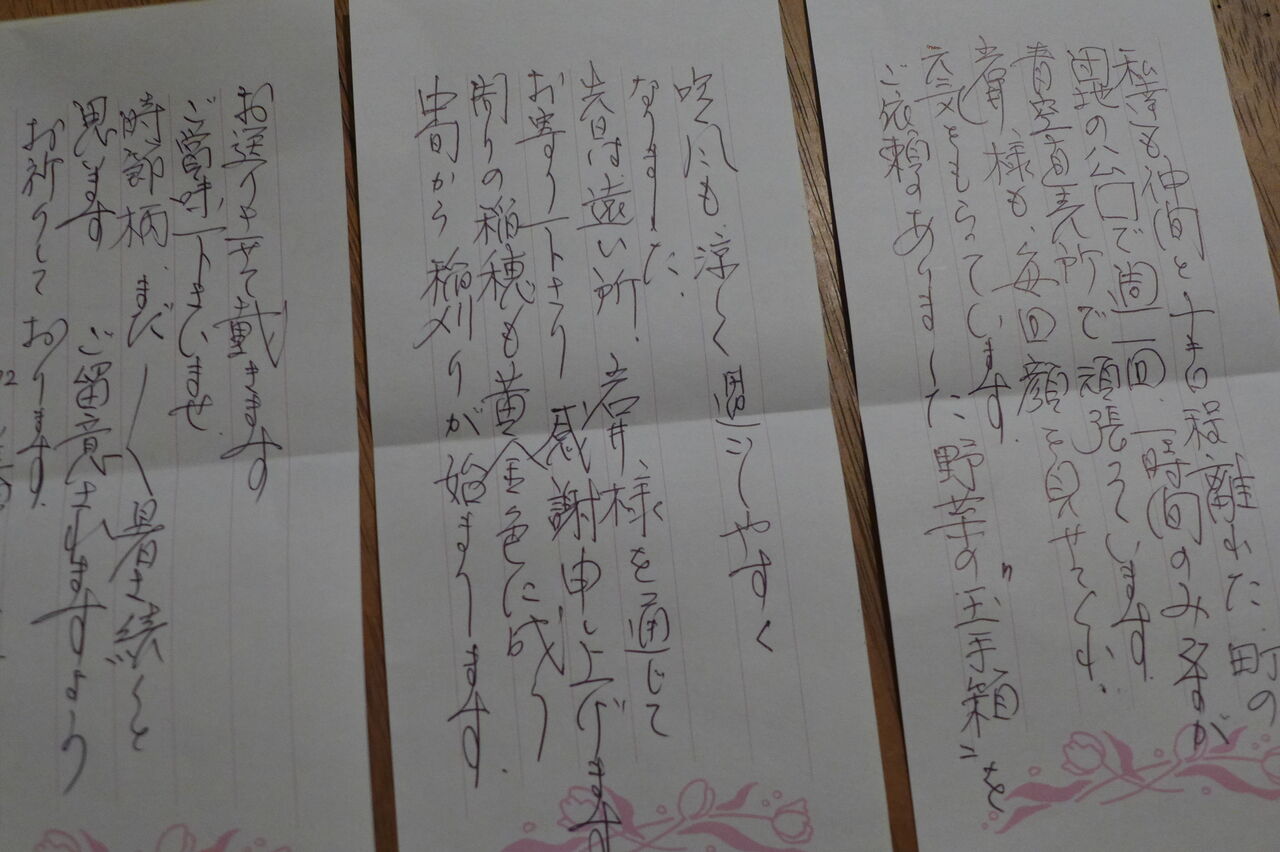 私等も仲間と十キロ程離れた町の
団地の公口で週一回、一時間のみですが
青空直売所で頑張っています
岩井様も、毎回顔を見せてくれ、
元気をもらっています。
ご依頼のありました野菜の"玉手箱"を
吹く風にも涼しく過ごしやすく
なりました。
先日は遠い所、岩井様を通じて
お寄り下さり 感謝申し上げます
周りの稲穂も黄金色に成り
中旬から稲刈りが始まります。
お送りさせて戴きます
ご賞味下さいませ
時節柄、まだ暑さ続くと
思います ご留意なさいますよう
お祈りしております。